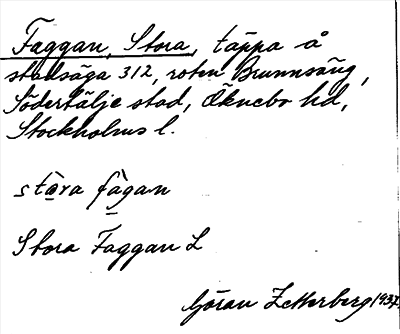 Faggan, Stora, täppa å
stadsäga 312, roten Brunnsäng,
Södertälje stad, Öknebo hd,
Stockholms l.
stɑ̀ra fàgan
Stora Faggan L
Göran Zetterberg 1937.